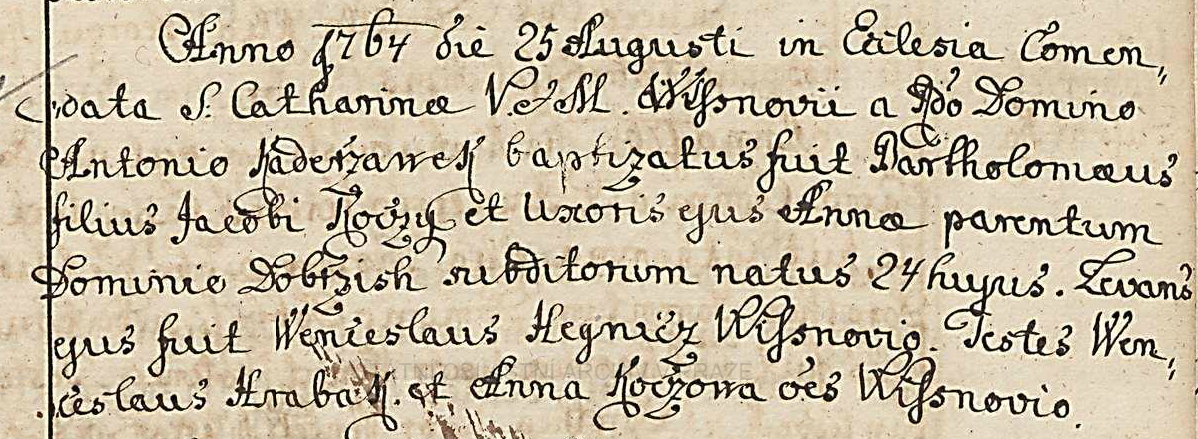 Anno 1764 die 25 Augusti in Ecclesia Comen„
data S. Catharinæ V. et M. Wissnovii a Rdo Domino
Antonio Kaderzawek baptizatus fuit Bartholomæus
filius Jacobi Koczy et Uxoris ejus Annæ parentum
Dominio Dobrzish subditorum natus 24 hujus. Levans
ejus fuit Wenceslaus Hegnicz Wissnovio. Testes Wen„
ceslaus Hrabak. et Anna Koczowa oes Wissnovio.